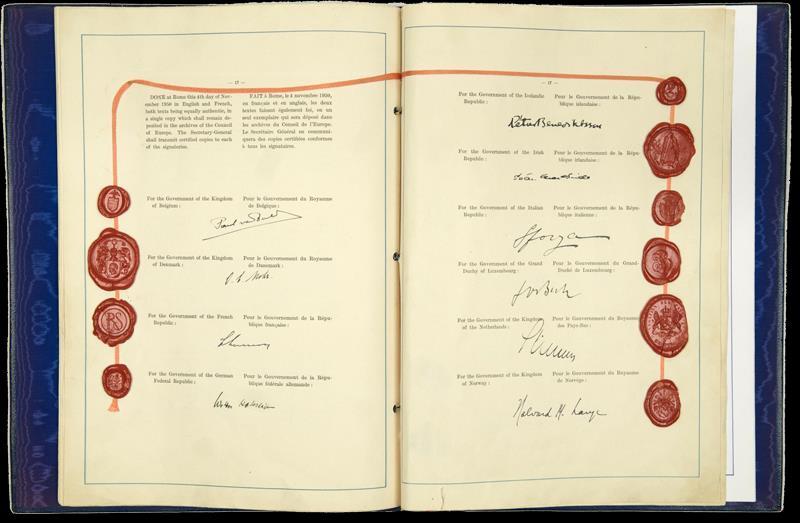 — 17 —
DONE at Rome this 4th day of Nov-
ember 1950 in English and French,
both texts being equally authentic, in
a single copy which shall remain de-
posited in the archives of the Council
of Europe. The Secretary-General
shall transmit certified copies to each
of the signatories.
FAIT à Rome, le 4 novembre 1950,
en français et en anglais, les deux
textes faisant également foi, en un
seul exemplaire qui sera déposé dans
les archives du Conseil de l'Europe.
Le Secrétaire Général en communi-
quera des copies certifiées conformes
à tous les signataires.
For the Government of the Kingdom
of Belgium :
Pour le Gouvernement du Royaume
de Belgique :
For the Government of the Kingdom
of Denmark :
Pour le Gouvernement du Royaume
de Danemark :
For the Government of the French
Republic :
Pour le Gouvernement de la Répu-
blique française :
For the Government of the German
Federal Republic :
Pour le Gouvernement de la Répu-
blique fédérale allemande :
— 17 —
For the Government of the Icelandic
Republic :
Pour le Gouvernement de la Répu-
blique islandaise :
For the Government of the Irish
Republic :
Pour le Gouvernement de la Répu-
blique irlandaise :
For the Government of the Italian
Republic :
Pour le Gouvernement de la Répu-
blique italienne :
Sforza
For the Government of the Grand
Duchy of Luxembourg :
Pour le Gouvernement du Grand-
Duché de Luxembourg :
Jos Bech
For the Government of the Kingdom
of the Netherlands :
Pour le Gouvernement du Royaume
des Pays-Bas :
For the Government of the Kingdom
of Norway :
Pour le Gouvernement du Royaume
de Norvège :
Halvard M. Lange
RS